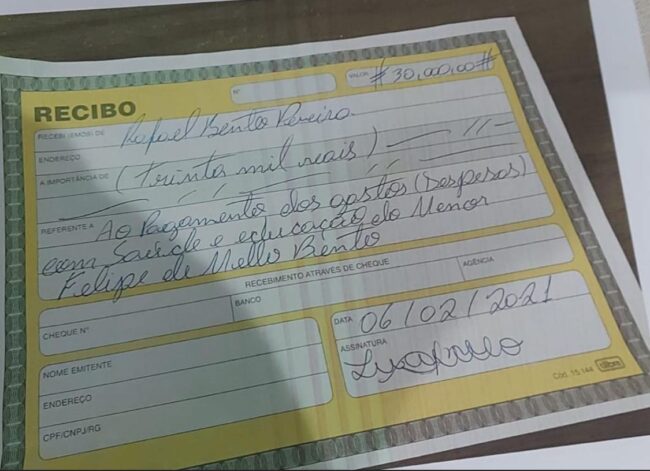 RECIBO
Nº
VALOR #30.000,00#
RECEBI (EMOS) DE Rafael Bento Pereira
ENDEREÇO
A IMPORTÂNCIA DE (trinta mil reais)
REFERENTE A Ao Pagamento dos gastos (Despesas)
com Saúde e educação do Menor
Felipe de Mello Bento
RECEBIMENTO ATRAVÉS DE CHEQUE
CHEQUE Nº
BANCO
AGÊNCIA
NOME EMITENTE
ENDEREÇO
CPF/CNPJ/RG
DATA 06/02/2021
ASSINATURA
Cód. 15.144